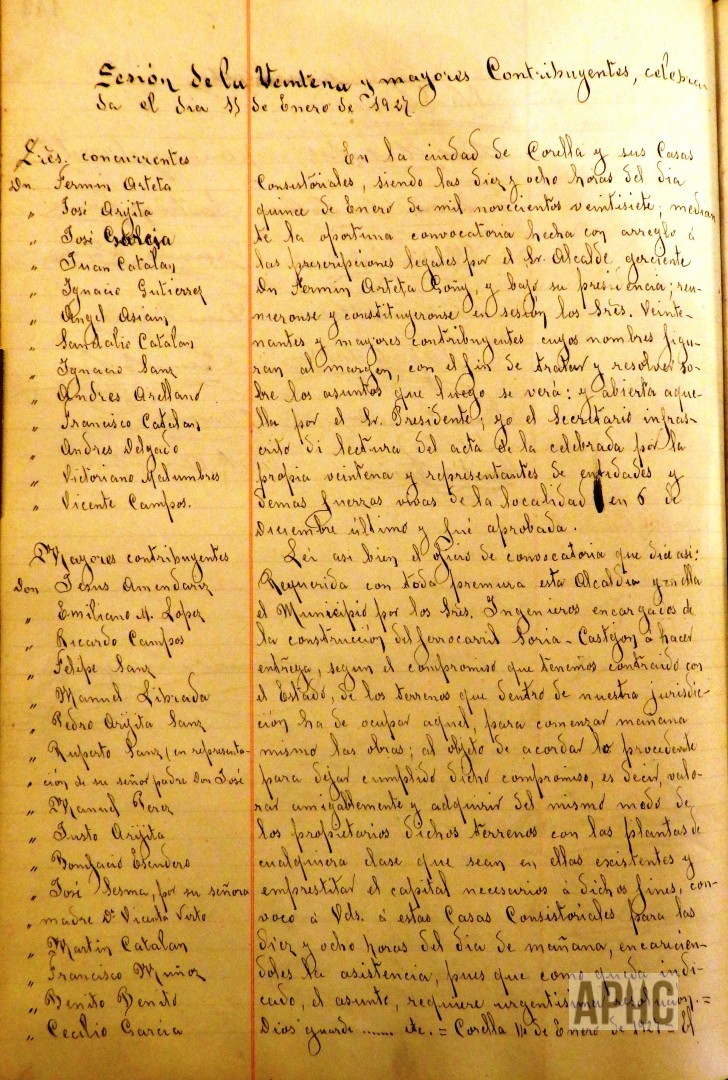 Sesión de la Veintena y mayores Contribuyentes, celebra
da el dia 15 de Enero de 1927
Sres. concurrentes
Dn Fermin Arteta
„ José Arijita
„ José Garcia
„ Juan Catalan
„ Ignacio Gutierrez
„ Angel Asiain
„ Sandalio Catalan
„ Ignacio Sanz
„ Andres Arellano
„ Francisco Catalan
„ Andres Delgado
„ Victoriano Malumbres
„ Vicente Campos.
Mayores contribuyentes
Don Jesus Amendariz
„ Emiliano M. Lopez
„ Ricardo Campos
„ Felipe Sanz
„ Manuel Librada
„ Pedro Arijita Sanz
„ Ruperto Sanz, en representa-
„ ción de su señor padre Don José
„ Manuel Perez
„ Justo Arijita
„ Bonifacio Escudero
„ José Sesma, por su señora
„ madre Dª Vicenta Virto
„ Martin Catalan
„ Francisco Muñoz
„ Benito Benito
„ Cecilio Garcia
En la ciudad de Corella y sus Casas
Consistoriales, siendo las diez y ocho horas del dia
quince de Enero de mil novecientos veintisiete; median
te la oportuna convocatoria hecha con arreglo á
las prescripciones legales por el Sr. Alcalde gerente
Dn Fermin Arteta Goñy, y bajo su presidencia; reu-
nieronse y constituyeronse en sesión los Sres. Veinte-
nantes y mayores contribuyentes cuyos nombres figu-
ran al margen, con el fin de tratar y resolver so-
bre los asuntos que luego se verá: y abierta aque-
lla por el Sr. Presidente; yo el Secretario infras-
crito di lectura del acta de la celebrada por la
propia veintena y representantes de entidades y
demas fuerzas vivas de la localidad en 6 de
Diciembre último y fué aprobada.
Lei asi bien el oficio de convocatoria que dice asi:
Requerida con toda premura esta Alcaldia y en ella
el Municipio por los Sres. Ingenieros encargados de
la construcción del ferrocarril Soria-Castejon á hacer
entrega, segun el compromiso que tenemos contraido con
el Estado, de los terrenos que dentro de nuestra jurisdic-
ción ha de ocupar aquel, para comenzar mañana
mismo las obras; al objeto de acordar lo procedente
para dejar cumplido dicho compromiso, es decir, valo-
rar amigablemente y adquirir del mismo modo de
los propietarios dichos terrenos con las plantas de
cualquiera clase que sean en ellas existentes y
emprestitar el capital necesarios á dichos fines, con-
voco á Vds. á estas Casas Consistoriales para las
diez y ocho horas del dia de mañana, encarecien-
doles la asistencia, pues que como queda indi-
cado, el asunto, requiere urgentisima resolucion. =
Dios guarde ....... etc. = Corella 14 de Enero de 1927 = El
APHC